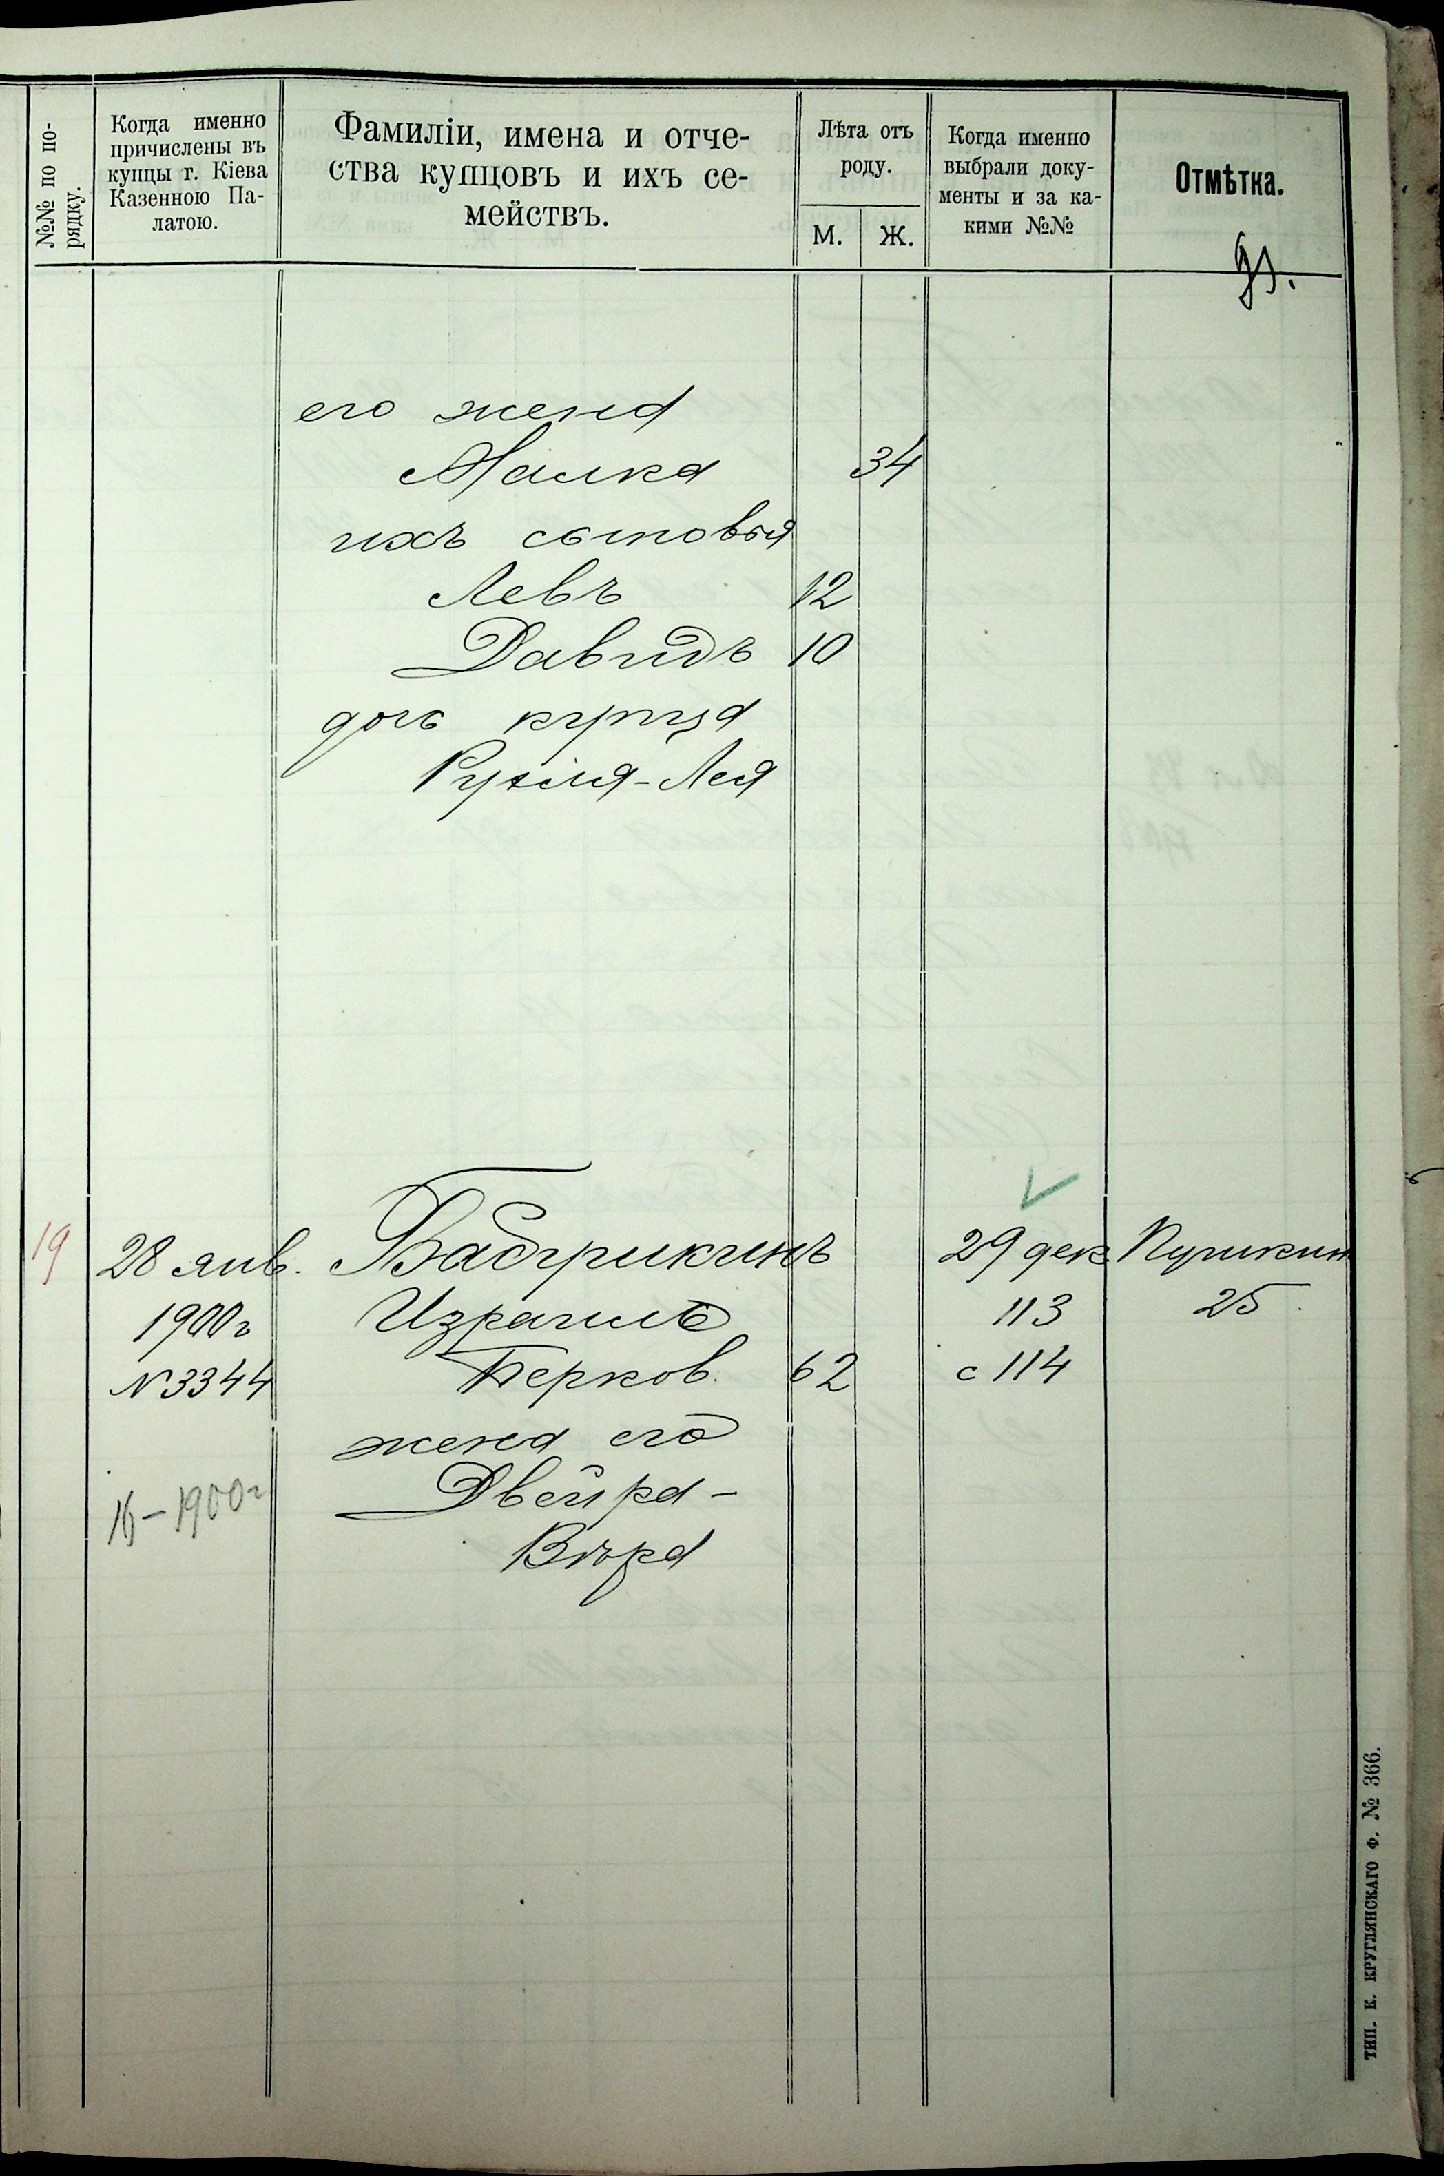 №№ по по-
рядку.
Когда именно
причислены въ
купцы г. Кіева
Казенною Па-
латою.
Фамиліи, имена и отче-
ства купцовъ и ихъ се-
мействъ.
Лѣта отъ
роду.
М. Ж.
Когда именно
выбрали доку-
менты и за ка-
кими №№
Отмѣтка.
его жена
Малка 34
ихъ сыновья
Левъ 12
Давидъ 10
дочь купца
Рухля-Лея
19 28 янв. Бабушкинъ 29 дек Пушкин
1900г Израиль 113 25
№3344 Берков. 62 с 114
жена его
16-1900г Двейра-
Вѣра
ТИП. К. КРУГЛЯНСКАГО Ф. № 366.